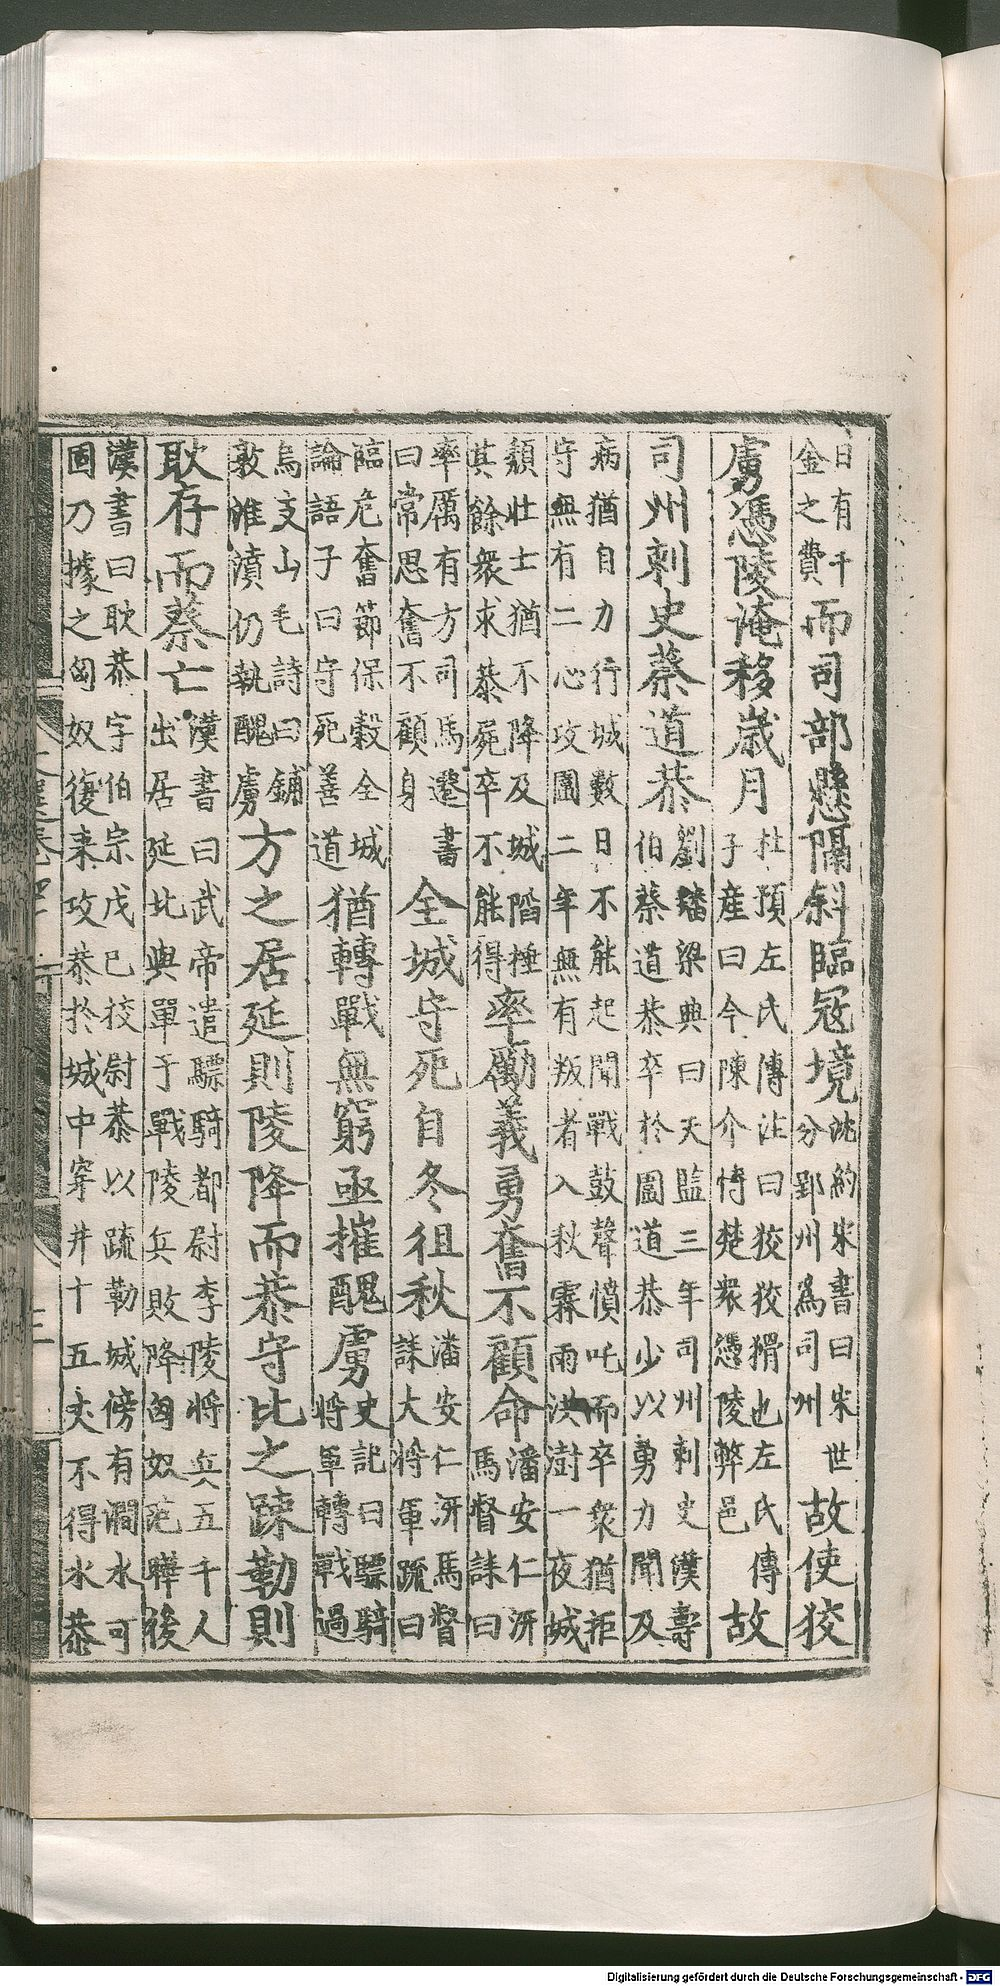 日有千金之費而司部懸隔斜臨冦境沈約宋書曰宋世分郢州爲司州故使狡
虜馮陵淹移歲月杜預左氏傳注曰狡狡猾也左氏傳子産曰今陳介恃楚衆憑陵弊邑故
司州刺史蔡道恭劉璠梁典曰天監三年司州刺史漢壽伯蔡道恭卒於圍道恭少以勇力聞及
病猶自力行城數日不能起聞戰鼓聲憤吒而卒衆猶拒
守無有二心攻圍二年無有叛者入秋霖雨洪澍一夜城
頽壯士猶不降及城陷捶其餘衆求恭屍卒不能得率勵義勇奮不顧命潘安仁汧馬督誄曰
率厲有方司馬遷書曰常思奮不顧身全城守死自冬徂秋潘安仁汧馬督誄大將軍疏曰
臨危奮節保穀全城論語子曰守死善道猶轉戰無窮亟摧醜虜史記曰驃騎將軍轉戰過
烏支山毛詩曰鋪敦淮濆仍執醜虜方之居延則陵降而恭守比之疎勒則
耿存而蔡亡漢書曰武帝遣驃騎都尉李陵將兵五千人出居延北與單于戰陵兵敗降匈奴范曄後
漢書曰耿恭字伯宗戊巳校尉恭以疏勒城傍有澗水可
固乃據之匈奴復来攻恭於城中穿井十五丈不得水恭
Digitalisierung gefördert durch die Deutsche Forschungsgemeinschaft - DFG